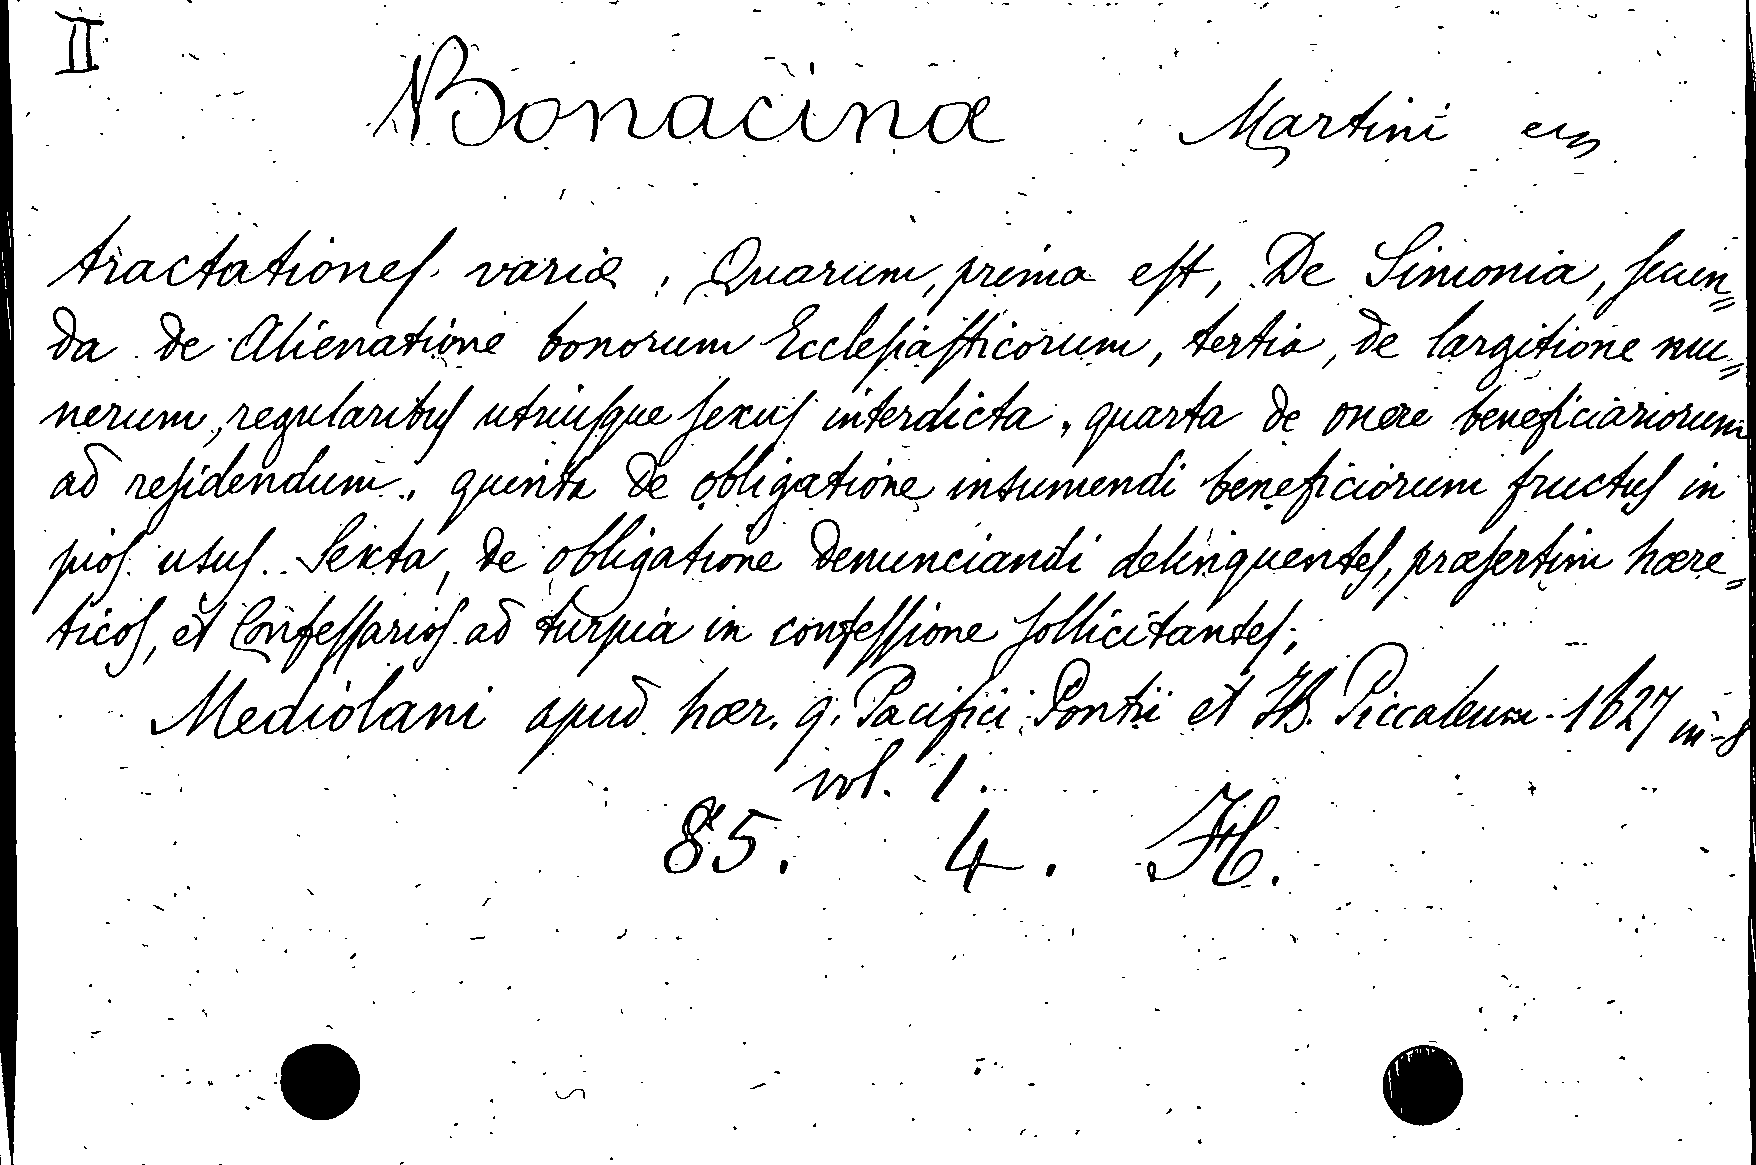 II
Bonacinæ Martini
tractationeſ variæ, Quarum, prima eſt, De Simonia, ſecun=
da de Alienatione bonorum Eccleſiaſticorum, tertia, de largitione mu=
nerum, regularibuſ utriuſque ſexuſ interdicta, quarta de onere beneficiariorum
ad reſidendum, quinta de obligatione insumendi beneficiorum fructuſ in
pioſ usuſ. Sexta, de obligatione denunciandi delinquenteſ, præſertim hære=
ticoſ, et Confeſſarioſ ad turpia in confeſſione ſollicitanteſ;
Mediolani apud hær. q. Pacifici Pontii et JB. Piccaleum 1627 in-8
vol. 1.
85. 4. H.